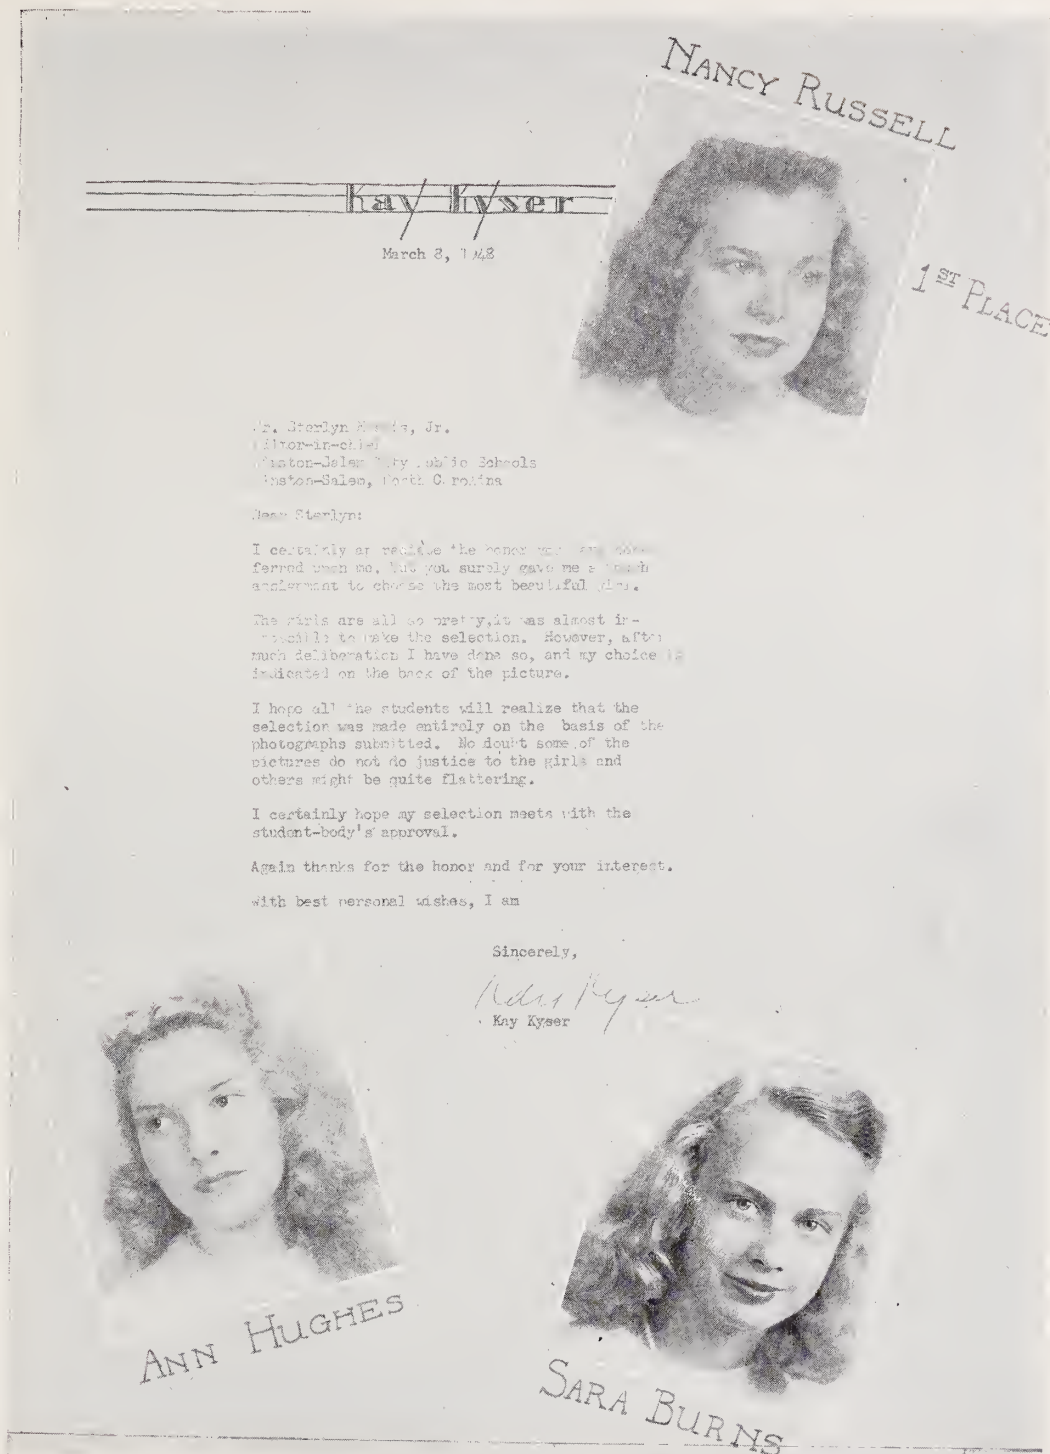 NANCY RUSSELL
Kay Kyser
March 8, 1948
1ST PLACE
Mr. Sterlyn Jr.
Editor-in-chief
Winston-Salem City Public Schools
Winston-Salem, North Carolina
Dear Sterlyn:
I certainly appreciate the honor you have con-
ferred upon me, but you surely gave me a tough
assignment to choose the most beautiful girl.
The girls are all so pretty, it was almost im-
possible to make the selection. However, after
much deliberation I have done so, and my choice is
indicated on the back of the picture.
I hope all the students will realize that the
selection was made entirely on the basis of the
photographs submitted. No doubt some of the
pictures do not do justice to the girls and
others might be quite flattering.
I certainly hope my selection meets with the
student-body's approval.
Again thanks for the honor and for your interest.
With best personal wishes, I am
Sincerely,
Kay Kyser
Kay Kyser
ANN HUGHES
SARA BURNS